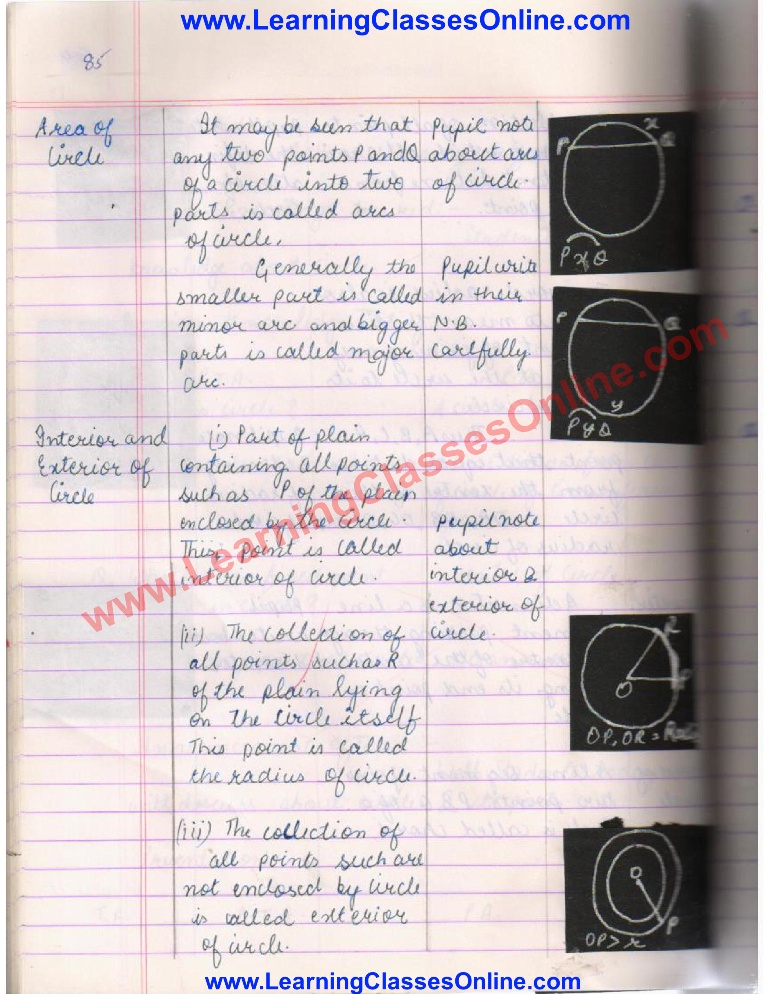 www.LearningClassesOnline.com
85
Area of
Circle
It may be seen that
any two points P and Q
of a circle into two
parts is called arcs
of circle.
Generally the
smaller part is called
minor arc and bigger
parts is called major
arc.
Pupil note
about arcs
of circle.
Pupil write
in their
N.B.
carlfully
x
P Q
PxQ
P Q
y
PyQ
Interior and
Exterior of
Circle
(i) Part of plain
containing all points
such as P of the plain
enclosed by the circle.
This point is called
interior of circle.
Pupil note
about
interior &
exterior of
circle.
(ii) The collection of
all points such as R
of the plain lying
on the circle itself
This point is called
the radius of circle.
R
O P
OP, OR =
(iii) The collection of
all points such are
not enclosed by circle
is called exterior
of circle.
O
P
OP > r
www.LearningClassesOnline.com
www.LearningClassesOnline.com